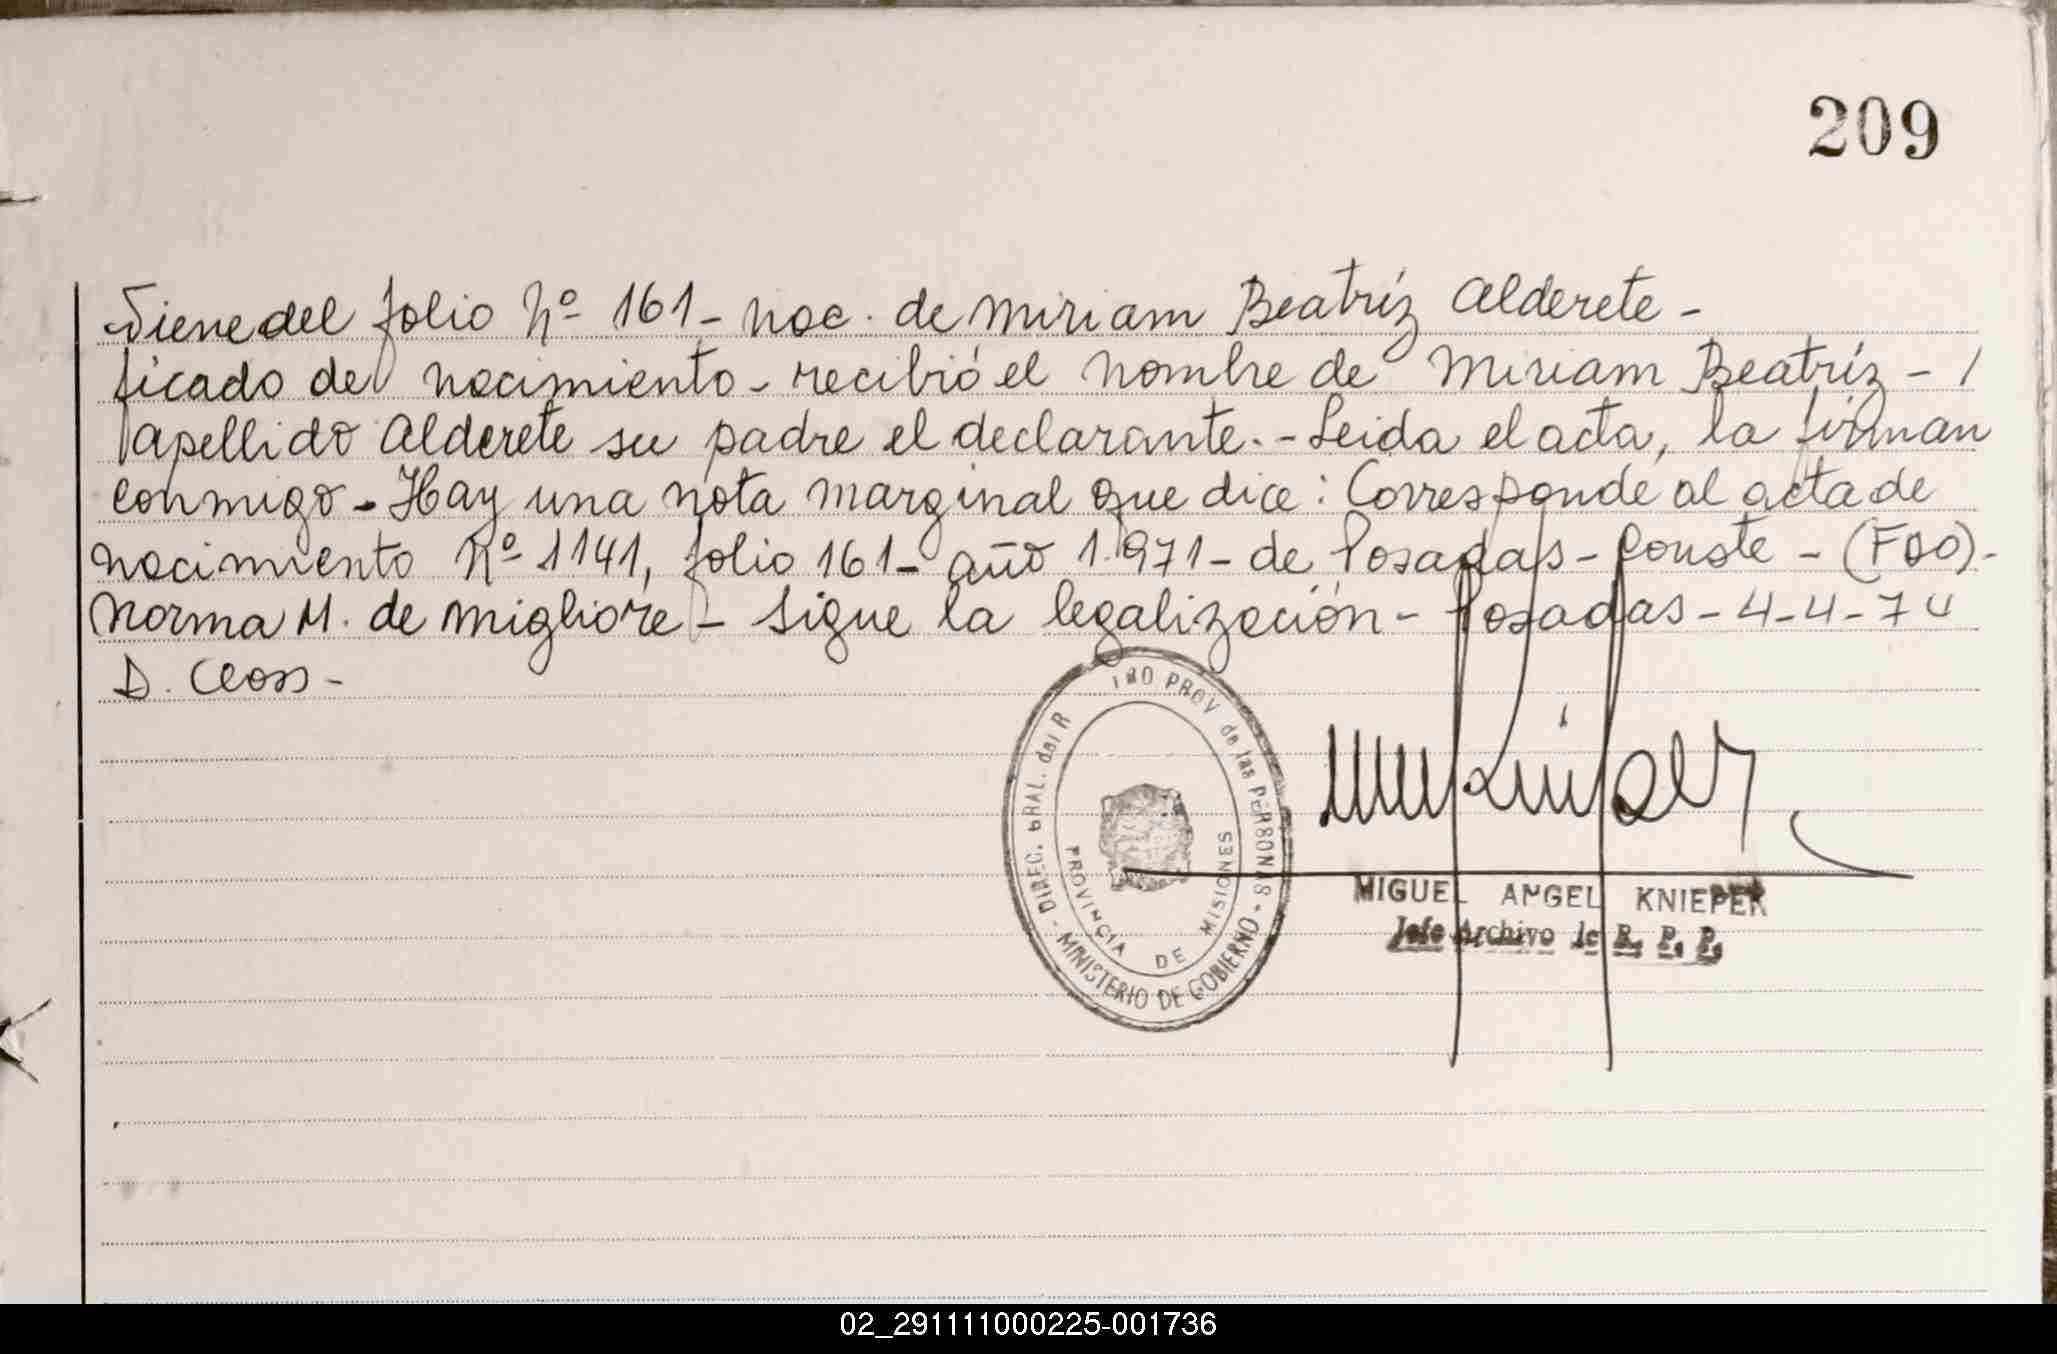 209
Viene del folio Nº 161 - nac. de Miriam Beatríz Alderete -
ficado de nacimiento - recibió el nombre de Miriam Beatríz - /
apellido Alderete su padre el declarante. - Leida el acta, la firman
conmigo - Hay una nota marginal que dice: Corresponde al acta de
nacimiento Nº 1141, folio 161 - año 1.971 - de Posadas - Conste - (FDO) -
Norma M. de Migliore - Sigue la legalización - Posadas - 4-4-74
D. Closs -
DIREC. GRAL. del R PROV de las PERSONAS - MINISTERIO DE GOBIERNO -
PROVINCIA DE MISIONES
MIGUEL ANGEL KNIEPER
Jefe Archivo R. P. P.
02_291111000225-001736